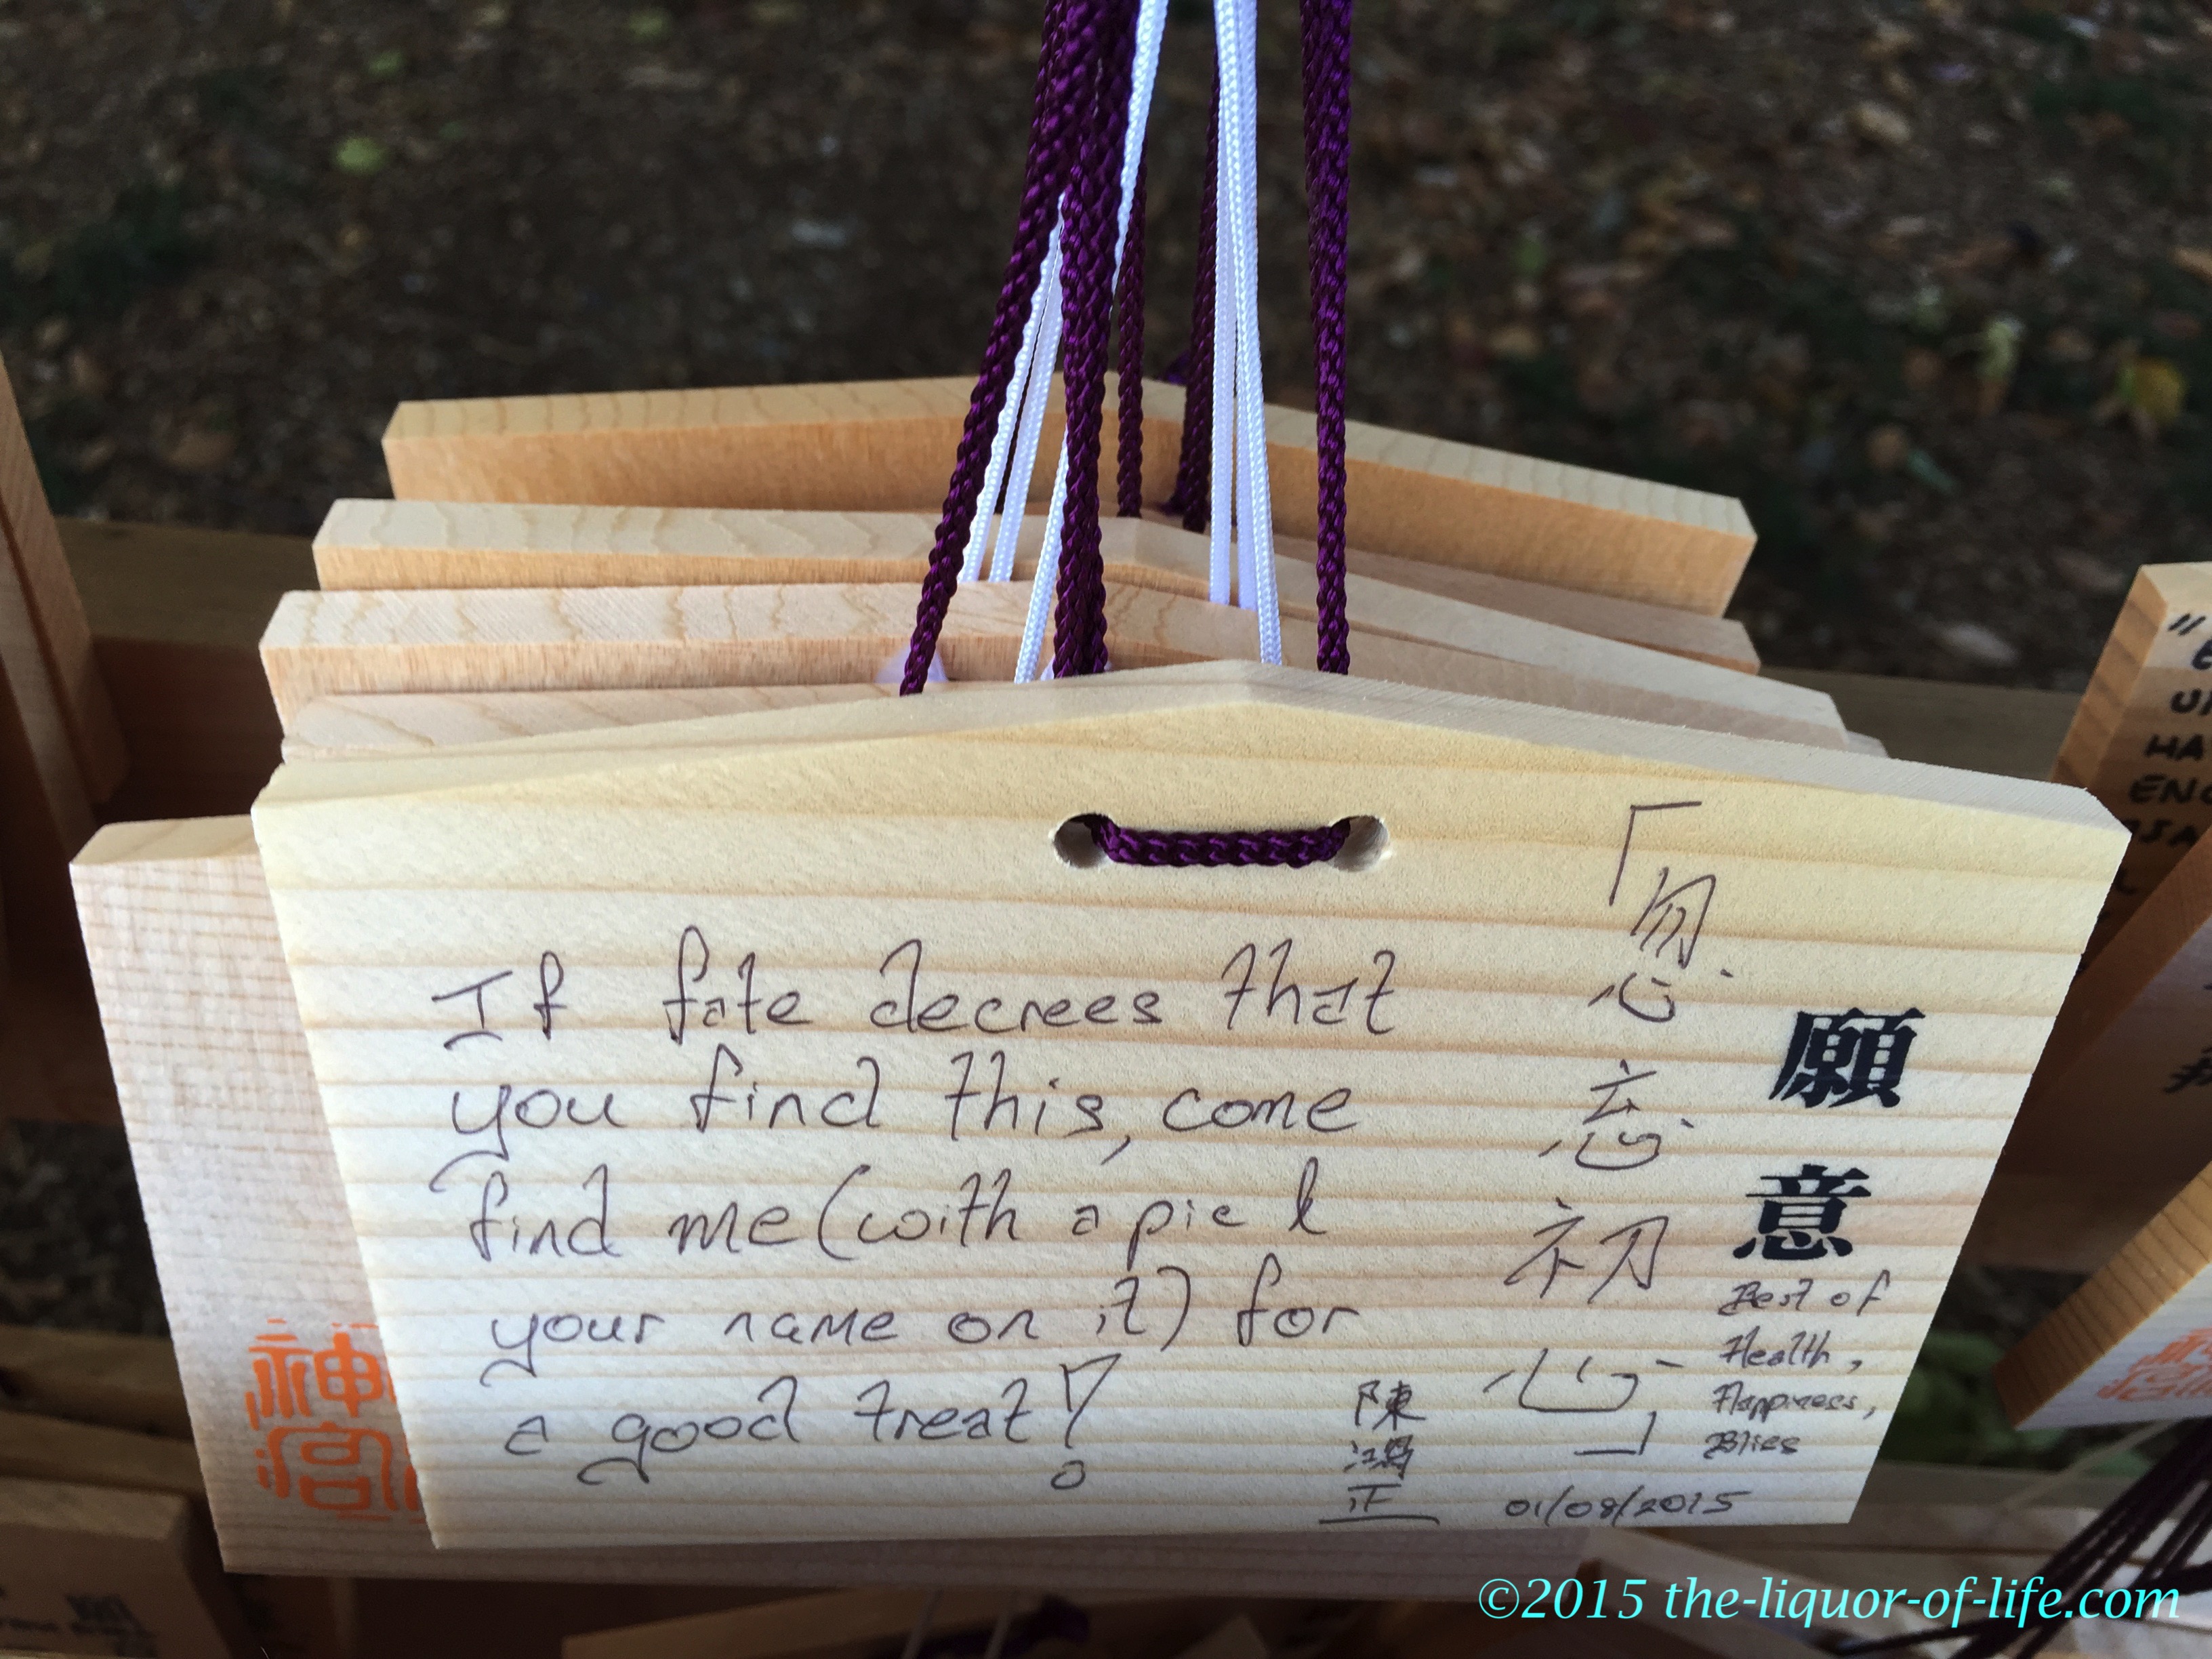 If fate decrees that
you find this, come
find me (with a pic
your name on it) for
a good treat!
「忽忘初心」
願意
Best of
Health,
Happiness,
Bliss
陳鴻正
01/08/2015
神宮
©2015 the-liquor-of-life.com